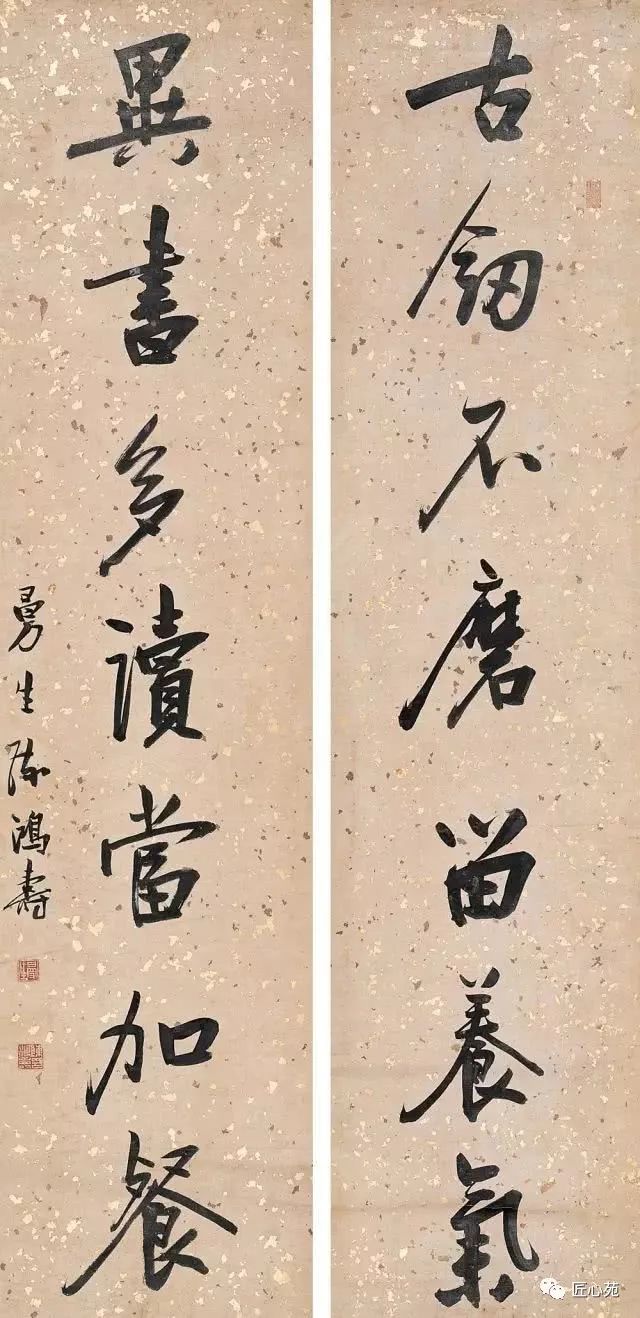 古釼不磨留養氣
異書多讀當加餐
曼生陳鴻壽
匠心苑